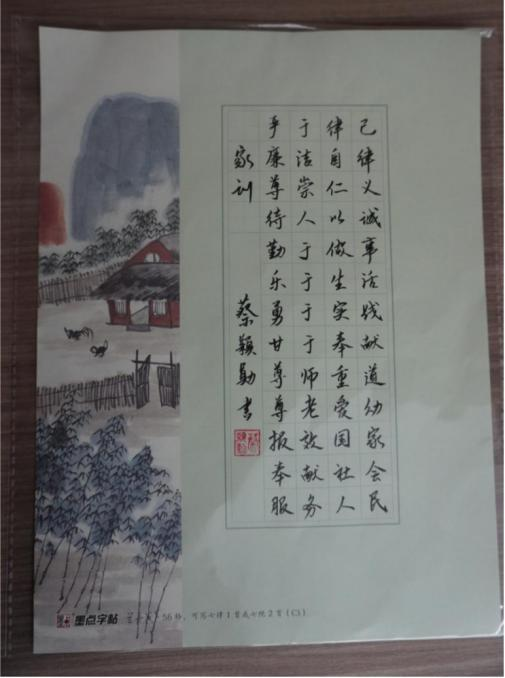 家训
严于律己
廉洁自律
尊崇仁义
待人以诚
勤于做事
乐于生活
勇于实践
甘于奉献
尊师重道
尊老爱幼
报效国家
奉献社会
服务人民
蔡颖勋书
墨点字帖
56格，可写七律1首或七绝2首(C3)